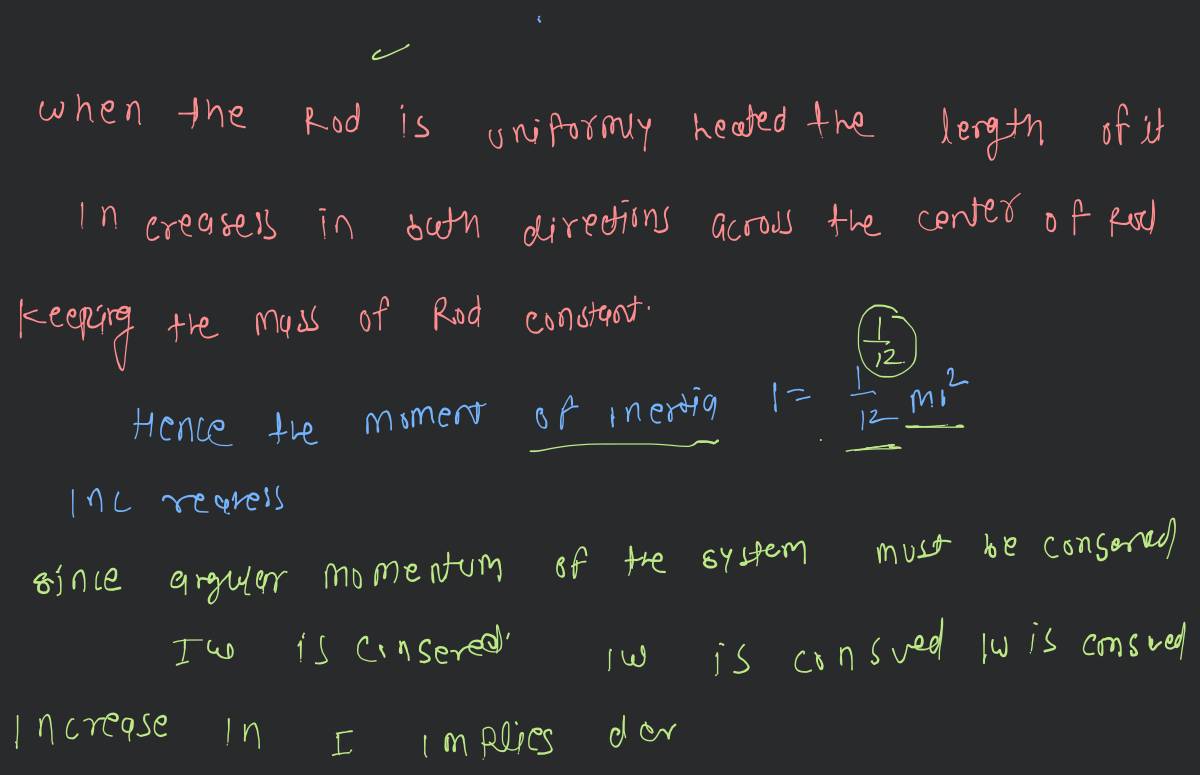 when the Rod is uniformly heated the length of it
In creasess in both directions across the center of Rod
Keeping the mass of Rod constant.
1/12
Hence the moment of inertia I = 1/12 ml²
Inc reasess
since angular momentum of the system must be conserved
Iω is consered. Iω is consved Iω is consved
Increase in I implies